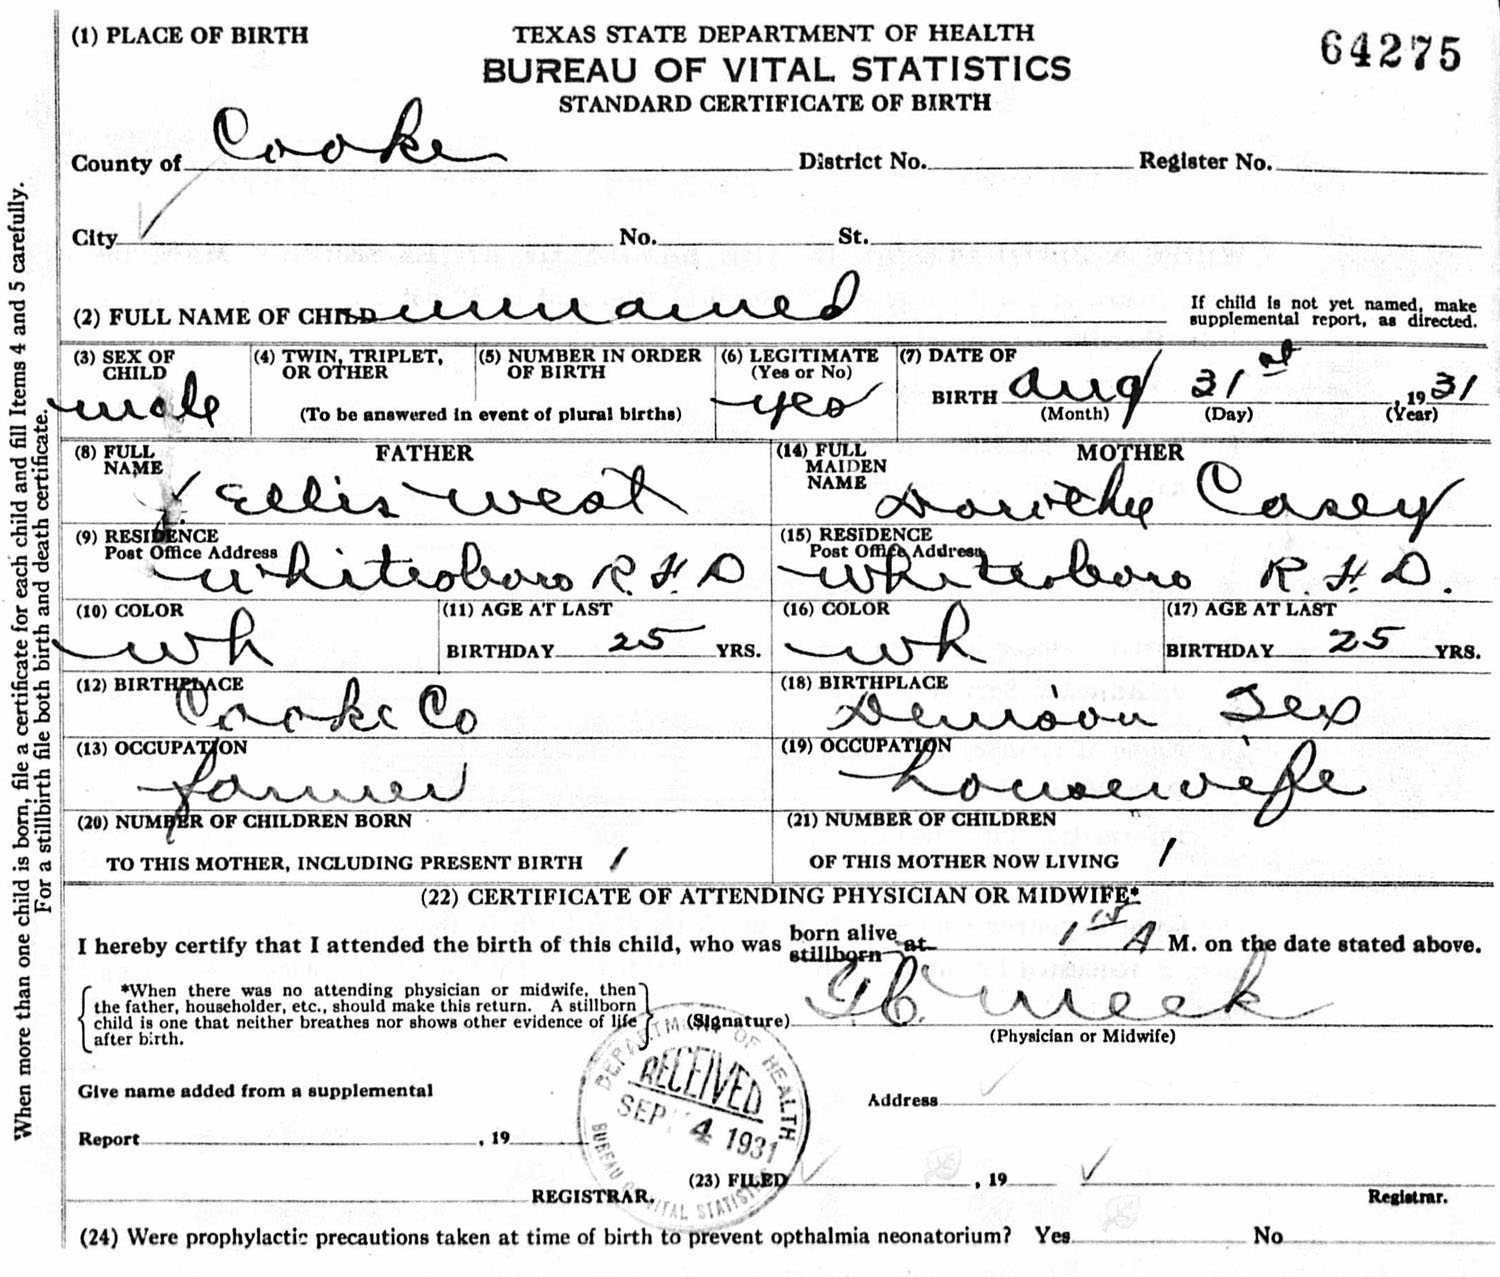 (1) PLACE OF BIRTH
TEXAS STATE DEPARTMENT OF HEALTH
BUREAU OF VITAL STATISTICS
STANDARD CERTIFICATE OF BIRTH
64275
County of Cooke District No. Register No.
City No. St.
(2) FULL NAME OF CHILD unnamed
If child is not yet named, make
supplemental report, as directed.
(3) SEX OF
CHILD
male
(4) TWIN, TRIPLET,
OR OTHER
(5) NUMBER IN ORDER
OF BIRTH
(To be answered in event of plural births)
(6) LEGITIMATE
(Yes or No)
yes
(7) DATE OF
BIRTH Aug 31st, 1931
(Month) (Day) (Year)
(8) FULL
NAME
FATHER
Ellis West
(14) FULL
MAIDEN
NAME
MOTHER
Dorithy Casey
(9) RESIDENCE
Post Office Address Whitesboro R.F.D
(15) RESIDENCE
Post Office Address Whitesboro R.F.D.
(10) COLOR
wh
(11) AGE AT LAST
BIRTHDAY 25 YRS.
(16) COLOR
wh
(17) AGE AT LAST
BIRTHDAY 25 YRS.
(12) BIRTHPLACE
Cooke Co
(18) BIRTHPLACE
Denison Tex
(13) OCCUPATION
farmer
(19) OCCUPATION
housewife
(20) NUMBER OF CHILDREN BORN
TO THIS MOTHER, INCLUDING PRESENT BIRTH 1
(21) NUMBER OF CHILDREN
OF THIS MOTHER NOW LIVING 1
(22) CERTIFICATE OF ATTENDING PHYSICIAN OR MIDWIFE*
I hereby certify that I attended the birth of this child, who was born alive
stillborn at 1 15 A M. on the date stated above.
*When there was no attending physician or midwife, then
the father, householder, etc., should make this return. A stillborn
child is one that neither breathes nor shows other evidence of life
after birth.
(Signature) Meek
(Physician or Midwife)
DEPARTMENT OF HEALTH
RECEIVED
SEP 4 1931
BUREAU OF VITAL STATISTICS
Give name added from a supplemental
Address
Report , 19
(23) FILED , 19
REGISTRAR.
Registrar.
(24) Were prophylactic precautions taken at time of birth to prevent opthalmia neonatorium? Yes No
When more than one child is born, file a certificate for each child and fill Items 4 and 5 carefully.
For a stillbirth file both birth and death certificate.